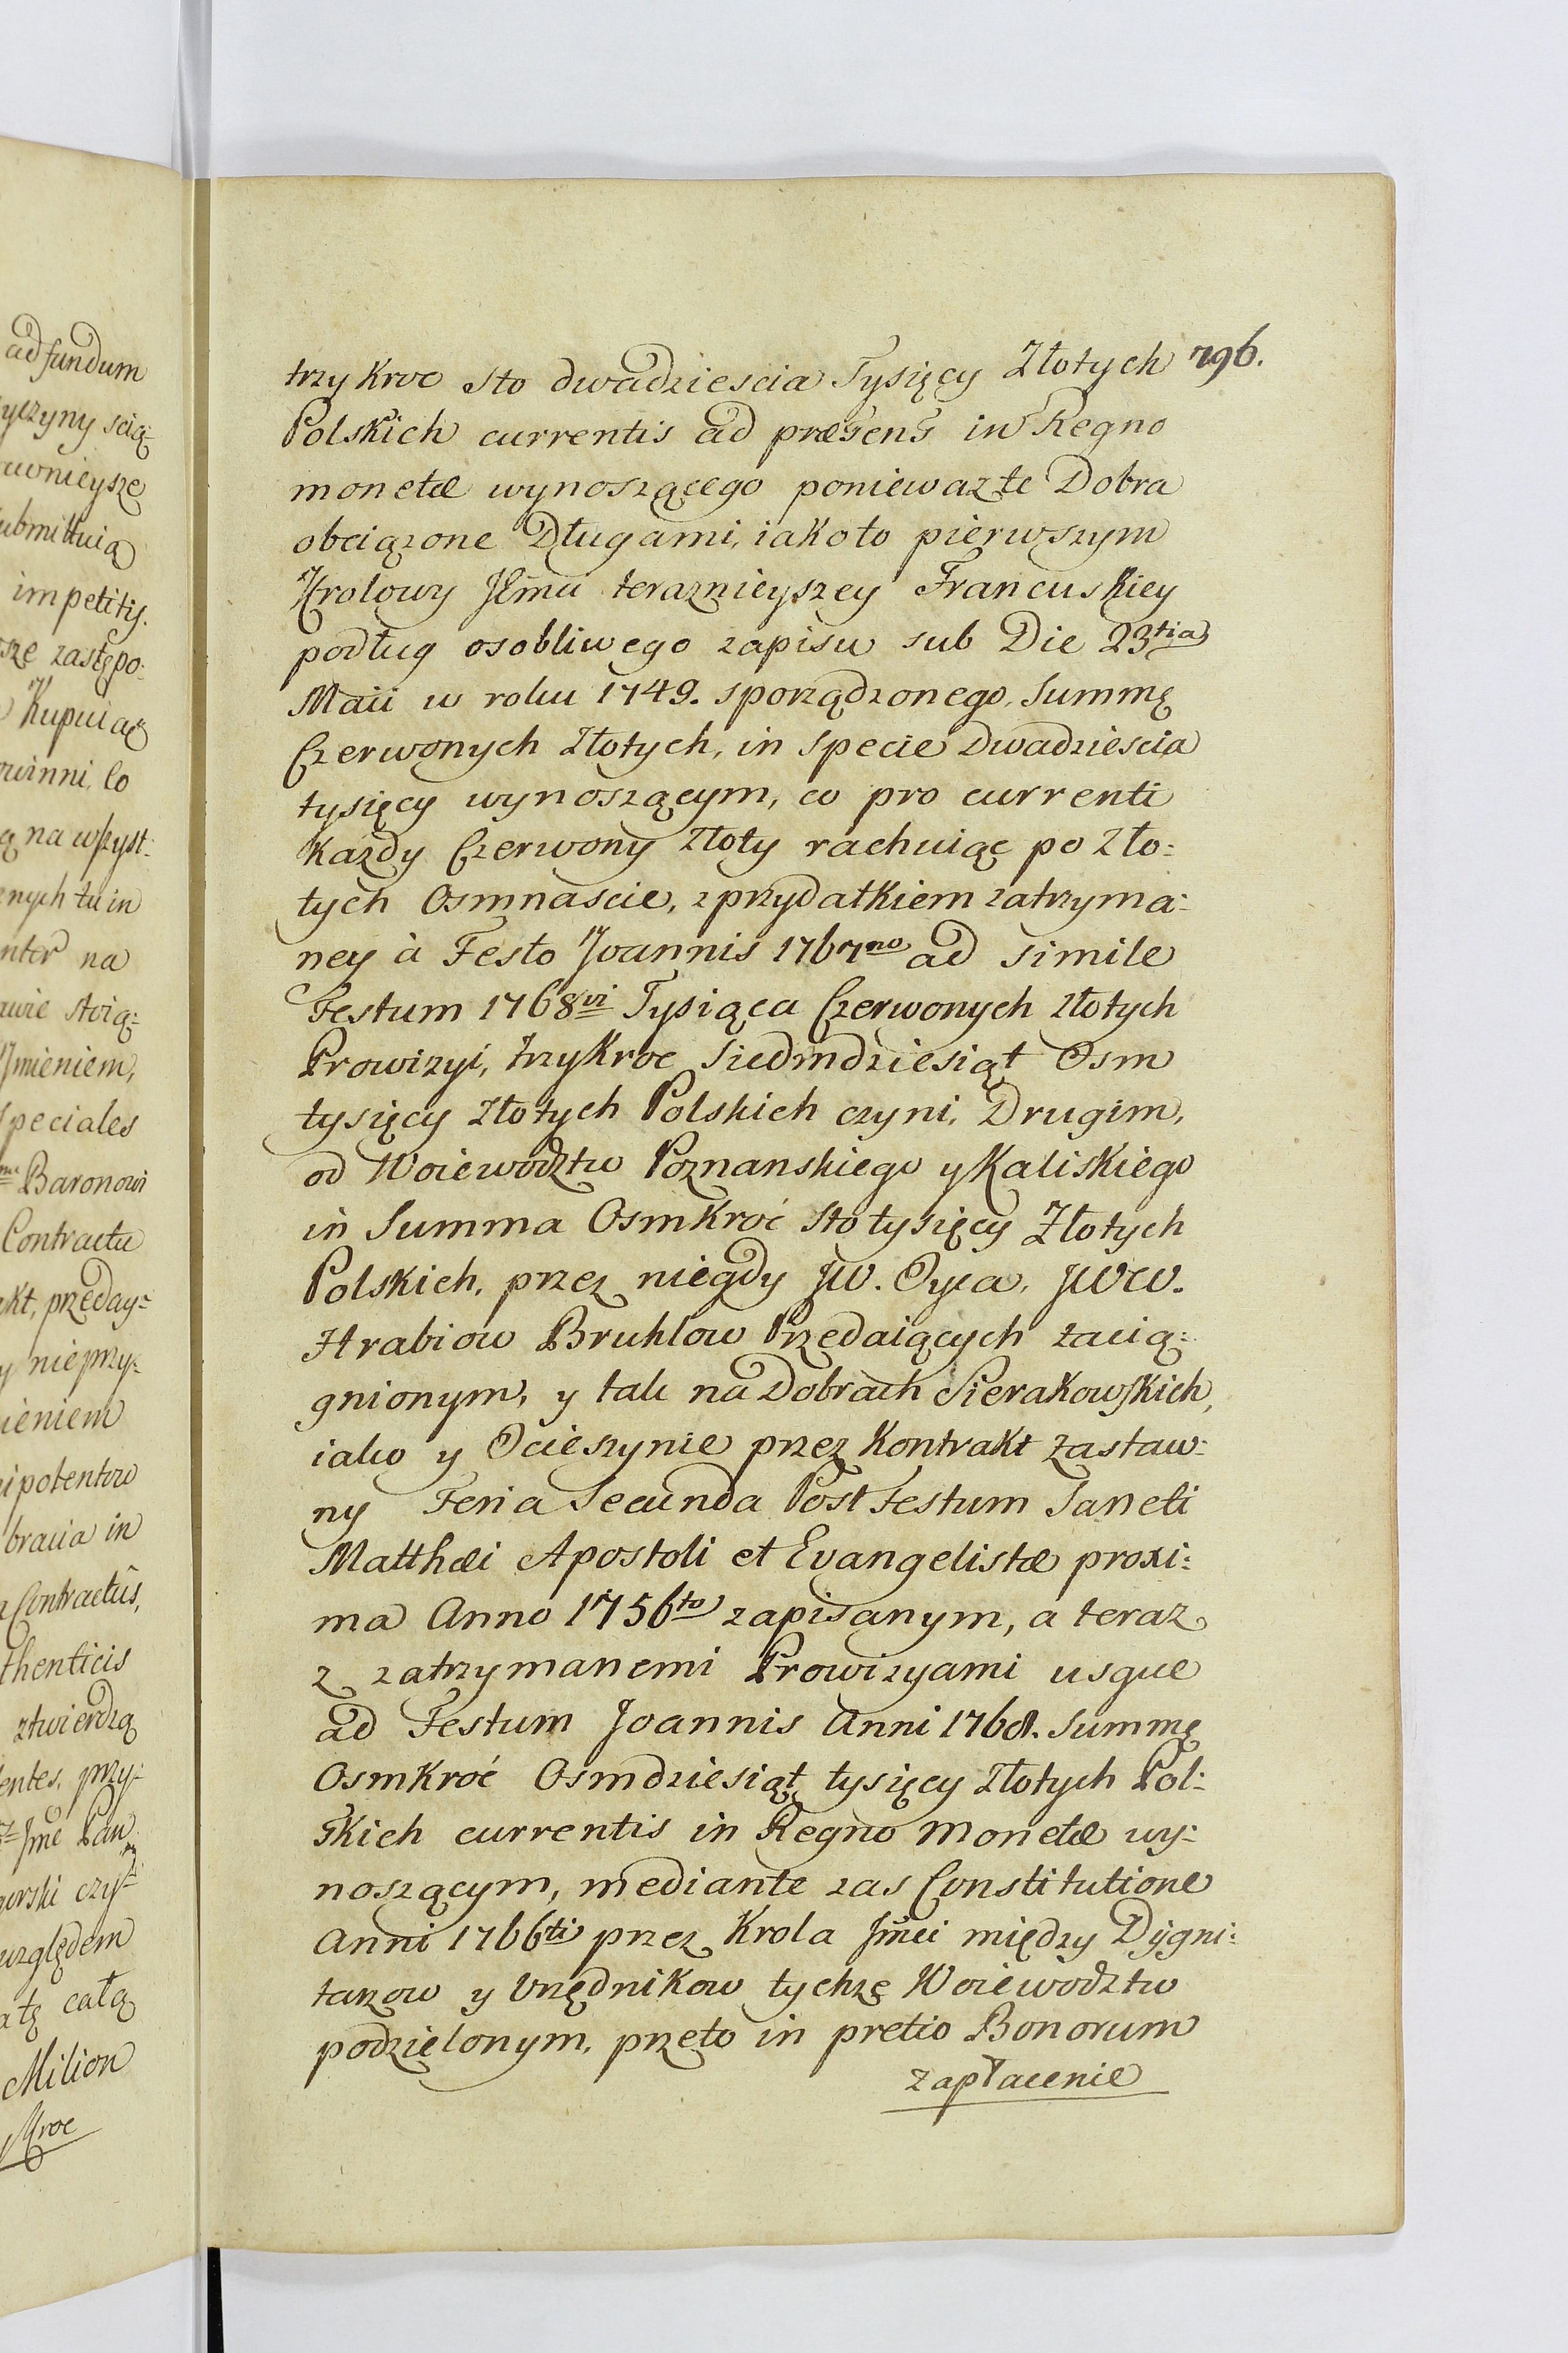 ad fundum
yczyny scią:
ubmittuią
impetitij.
sze zastępo:
Kupuiąc
owinni, Co
ą na wszyst:
enych tu in
nter na
awie stoią:
Jmieniem,
speciales
Baronowi
Contractu
akt, przeday:
y nieprzy:
ieniem
ipotentow
bracia in
Contractûs,
thenticis
ztwierdzą
entes, przy:
Jmć Pan
gorski czy:
względem
a tę całą
Milion
Kroc
796.
trzykroc sto dwadziescia Tysięcy Złotych
Polskich currentis ad præsens in Regno
monetæ wynoszącego poniewaz te Dobra
obciązone Długami, iako to pierwszym
Krolowy Jeĩmci teraznieyszey Francuskiey
podług osobliwego zapisu sub Die 23tia
Maii w roku 1749. sporządzonego, Summę
Czerwonych Złotych, in specie Dwadziescia
tysięcy wynoszącym, co pro currenti
kazdy Czerwony Złoty rachuiąc po Zło:
tych Osmnascie, z przydatkiem zatrzyma:
ney à Festo Joannis 1767mo ad simile
Festum 1768vi Tysiąca Czerwonych Złotych
Prowizyi, trzykroc Siedmdziesiąt Osm
tysięcy Złotych Polskich czyni, Drugim,
od Woiewodztw Poznanskiego y Kaliskiego
in Summa Osmkroć sto tysięcy Złotych
Polskich, przez niegdy JW. Oyca, JWW.
Hrabiow Bruhlow Przedaiących zacią:
gnionym, y tak na Dobrach Sierakowskich,
iako y Ocieszynie przez Kontrakt zastaw:
ny Feria Secunda Post Festum Sancti
Matthæi Apostoli et Evangelistæ proxi:
ma Anno 1756to zapisanym, a teraz
z zatrzymanemi Prowizyami usque
ad Festum Joannis Anni 1768. Summę
Osmkroć Osmdziesiąt tysięcy Złotych Pol:
skich currentis in Regno Monetæ wy:
noszącym, mediante zas Constitutione
Anni 1766ti przez Krola Jmci między Dygni:
tarzow y Urzędnikow tychze Woiewodztw
podzielonym, przeto in pretio Bonorum
zapłacenie